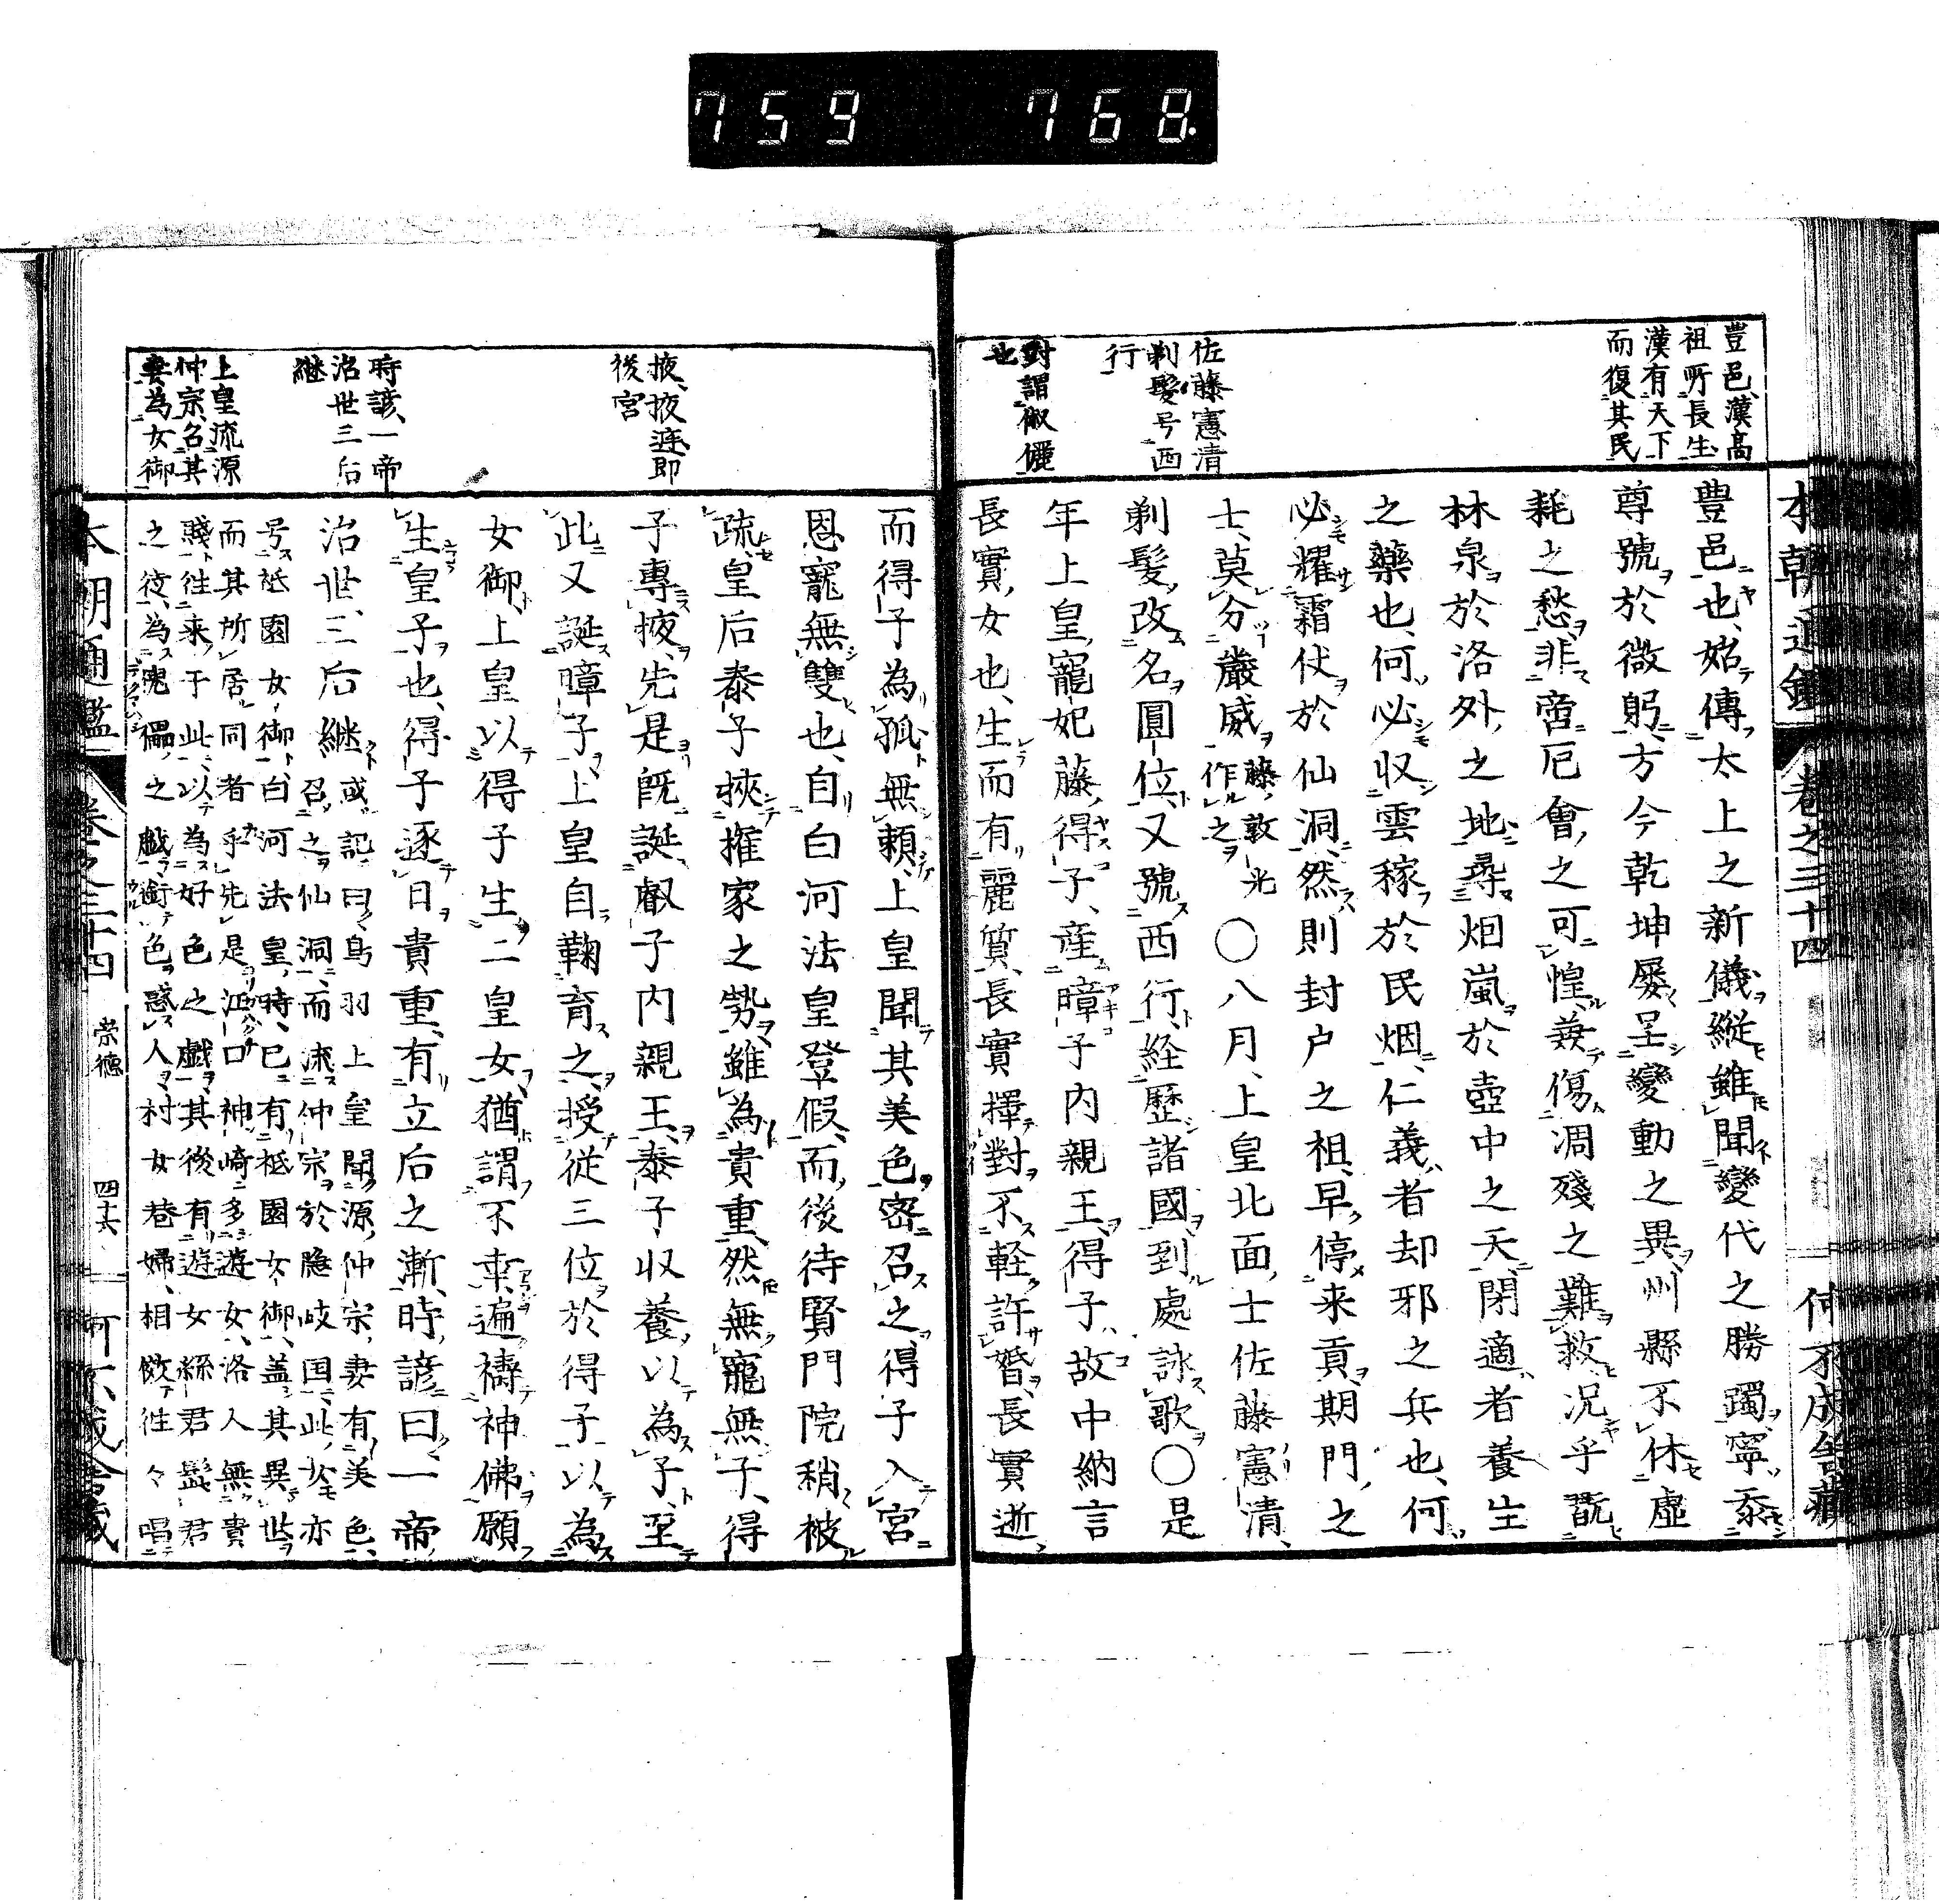 759 768.
本朝通鑑 卷之三十四
豈邑漢高
祖所長生
漢有天下
而復其民
佐藤憲清
剃髮号西
行
對謂俶儷
也
豐邑也、始傳太上之新儀縱雖聞變代之勝躅寧忝
尊號於微躬方今乾坤屡呈變動之異州縣不休虛
耗之愁、非啻厄會之可惶、兼傷凋殘之難救况乎翫
林泉於洛外之地尋烟嵐於壺中之天閑適者養生
之藥也、何必収雲稼於民烟、仁義者却邪之兵也、何
必耀霜仗於仙洞、然則封户之租早停来貢、期門之
士、莫分嚴威藤敦光
作之〇八月、上皇北面士佐藤憲清、
剃髮改名圓位、又號西行、経歴諸國到處詠歌〇是
年上皇寵妃藤得子、産暲子内親王、得子故中納言
長實女也、生而有麗質、長實擇對不軽許婚、長實逝
掖掖庭即
後宮
時諺一帝
治世三后
継
上皇流源
仲宗名其
妻為女御
而得子為孤無頼、上皇聞其美色密召之得子入宮
恩寵無雙也、自白河法皇登假而後待賢門院稍被
疏皇后泰子挾權家之勢雖為貴重、然無寵無子、得
子專掖、先是既誕叡子内親王泰子収養以為子、至
此又誕暲子、上皇自鞠育之、授従三位於得子以為
女御、上皇以得子生二皇女猶謂不幸遍禱神佛願
生皇子也、得子逐日貴重、有立后之漸時諺曰、一帝
治世、三后継或記曰鳥羽上皇聞源仲宗妻有美色、
召之仙洞、而流仲宗於隠岐国此女亦
号祇園女御、白河法皇時已有祇園女御、盖其異世
而其所居同者乎、先是江口神崎多遊女、洛人無貴
賤往来于此、以為好色之戯、其後有遊女絲君髭君
之徒、為傀儡之戯衒色惑人、村女巷婦、相傚往々唱
本朝通鑑 卷之三十四 崇德 四十六